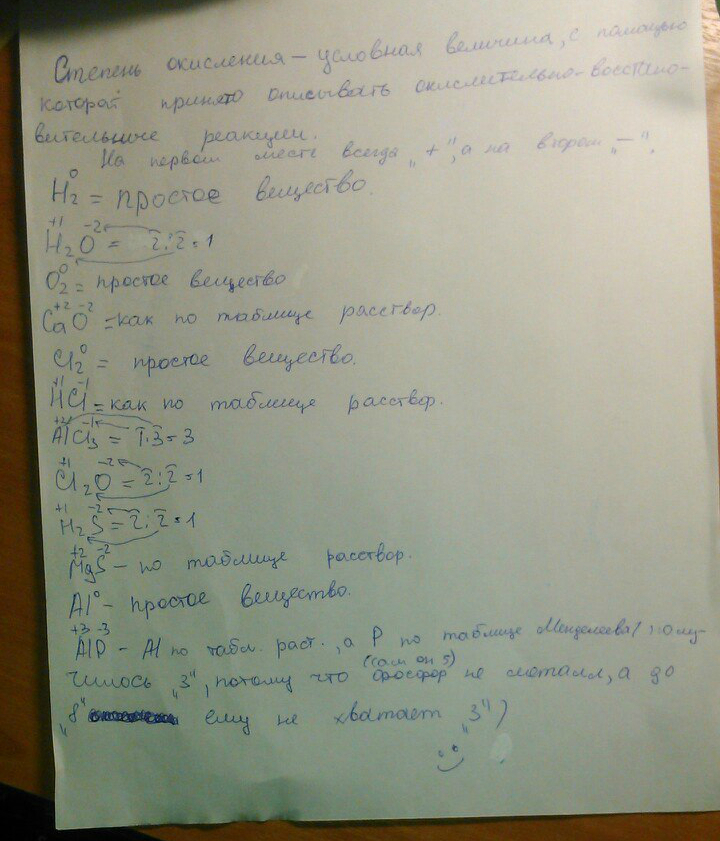 Степень окисления – условная величина, с помощью
которой принято описывать окислительно-восстано-
вительные реакции.
На первом месте всегда „+“, а на втором „–“.
H₂⁰ = простое вещество.
H₂⁺¹O⁻² = 2̄:2̄=1
O₂⁰ = простое вещество
Ca⁺²O⁻² = как по таблице расствор.
Cl₂⁰ = простое вещество.
H⁺¹Cl⁻¹ = как по таблице расствор.
Al⁺³Cl₃⁻¹ = 1̄·3̄=3
Cl₂⁺¹O⁻² = 2̄:2̄=1
H₂⁺¹S⁻² = 2̄:2̄=1
Mg⁺²S⁻² – по таблице расствор.
Al⁰ – простое вещество.
Al⁺³P⁻³ – Al по табл. раст., а P по таблице Менделеева(полу-
чилось „3“, потому что фосфор (сам он 5) не металл, а до
„8“ ему не хватает „3“)